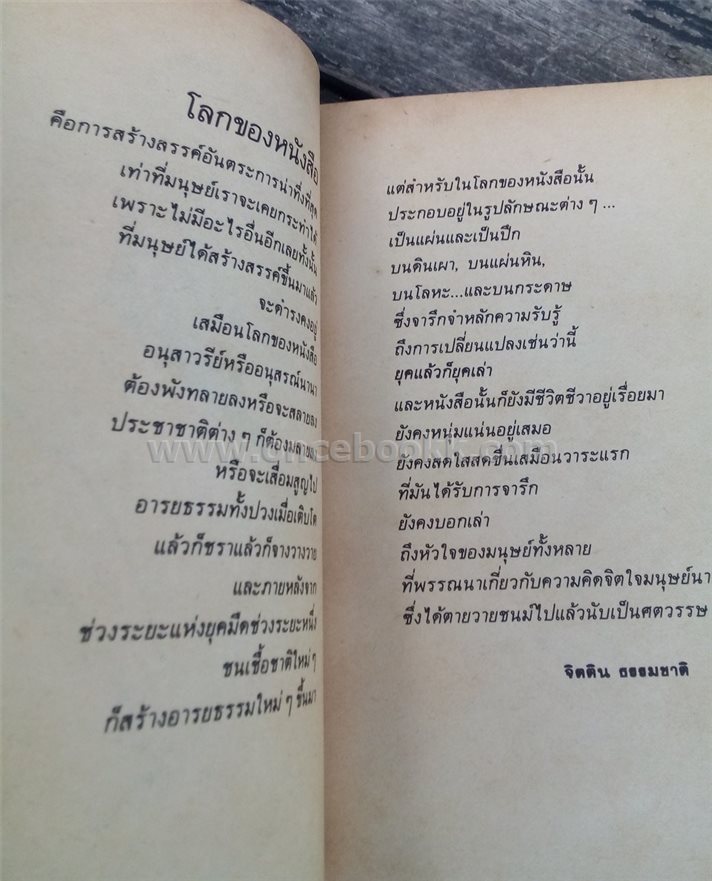 โลกของหนังสือ
คือการสร้างสรรค์อันตระการน่าทึ่งที่สุด
เท่าที่มนุษย์เราจะเคยกระทำได้
เพราะไม่มีอะไรอื่นอีกเลยทั้งนั้น
ที่มนุษย์ได้สร้างสรรค์ขึ้นมาแล้ว
จะดำรงคงอยู่
เสมือนโลกของหนังสือ
อนุสาวรีย์หรืออนุสรณ์นานา
ต้องพังทลายลงหรือจะสลายลง
ประชาชาติต่าง ๆ ก็ต้องมลาย
หรือจะเสื่อมสูญไป
อารยธรรมทั้งปวงเมื่อเติบโต
แล้วก็ชราแล้วก็จางวางวาย
และภายหลังจาก
ช่วงระยะแห่งยุคมืดช่วงระยะหนึ่ง
ชนเชื้อชาติใหม่ ๆ
ก็สร้างอารยธรรมใหม่ ๆ ขึ้นมา
แต่สำหรับในโลกของหนังสือนั้น
ประกอบอยู่ในรูปลักษณะต่าง ๆ ...
เป็นแผ่นและเป็นปึก
บนดินเผา, บนแผ่นหิน,
บนโลหะ...และบนกระดาษ
ซึ่งจารึกจำหลักความรับรู้
ถึงการเปลี่ยนแปลงเช่นว่านี้
ยุคแล้วก็ยุคเล่า
และหนังสือนั้นก็ยังมีชีวิตชีวาอยู่เรื่อยมา
ยังคงหนุ่มแน่นอยู่เสมอ
ยังคงสดใสสดชื่นเสมือนวาระแรก
ที่มันได้รับการจารึก
ยังคงบอกเล่า
ถึงหัวใจของมนุษย์ทั้งหลาย
ที่พรรณนาเกี่ยวกับความคิดจิตใจมนุษย์นา
ซึ่งได้ตายวายชนม์ไปแล้วนับเป็นศตวรรษ
จิตติน ธรรมชาติ